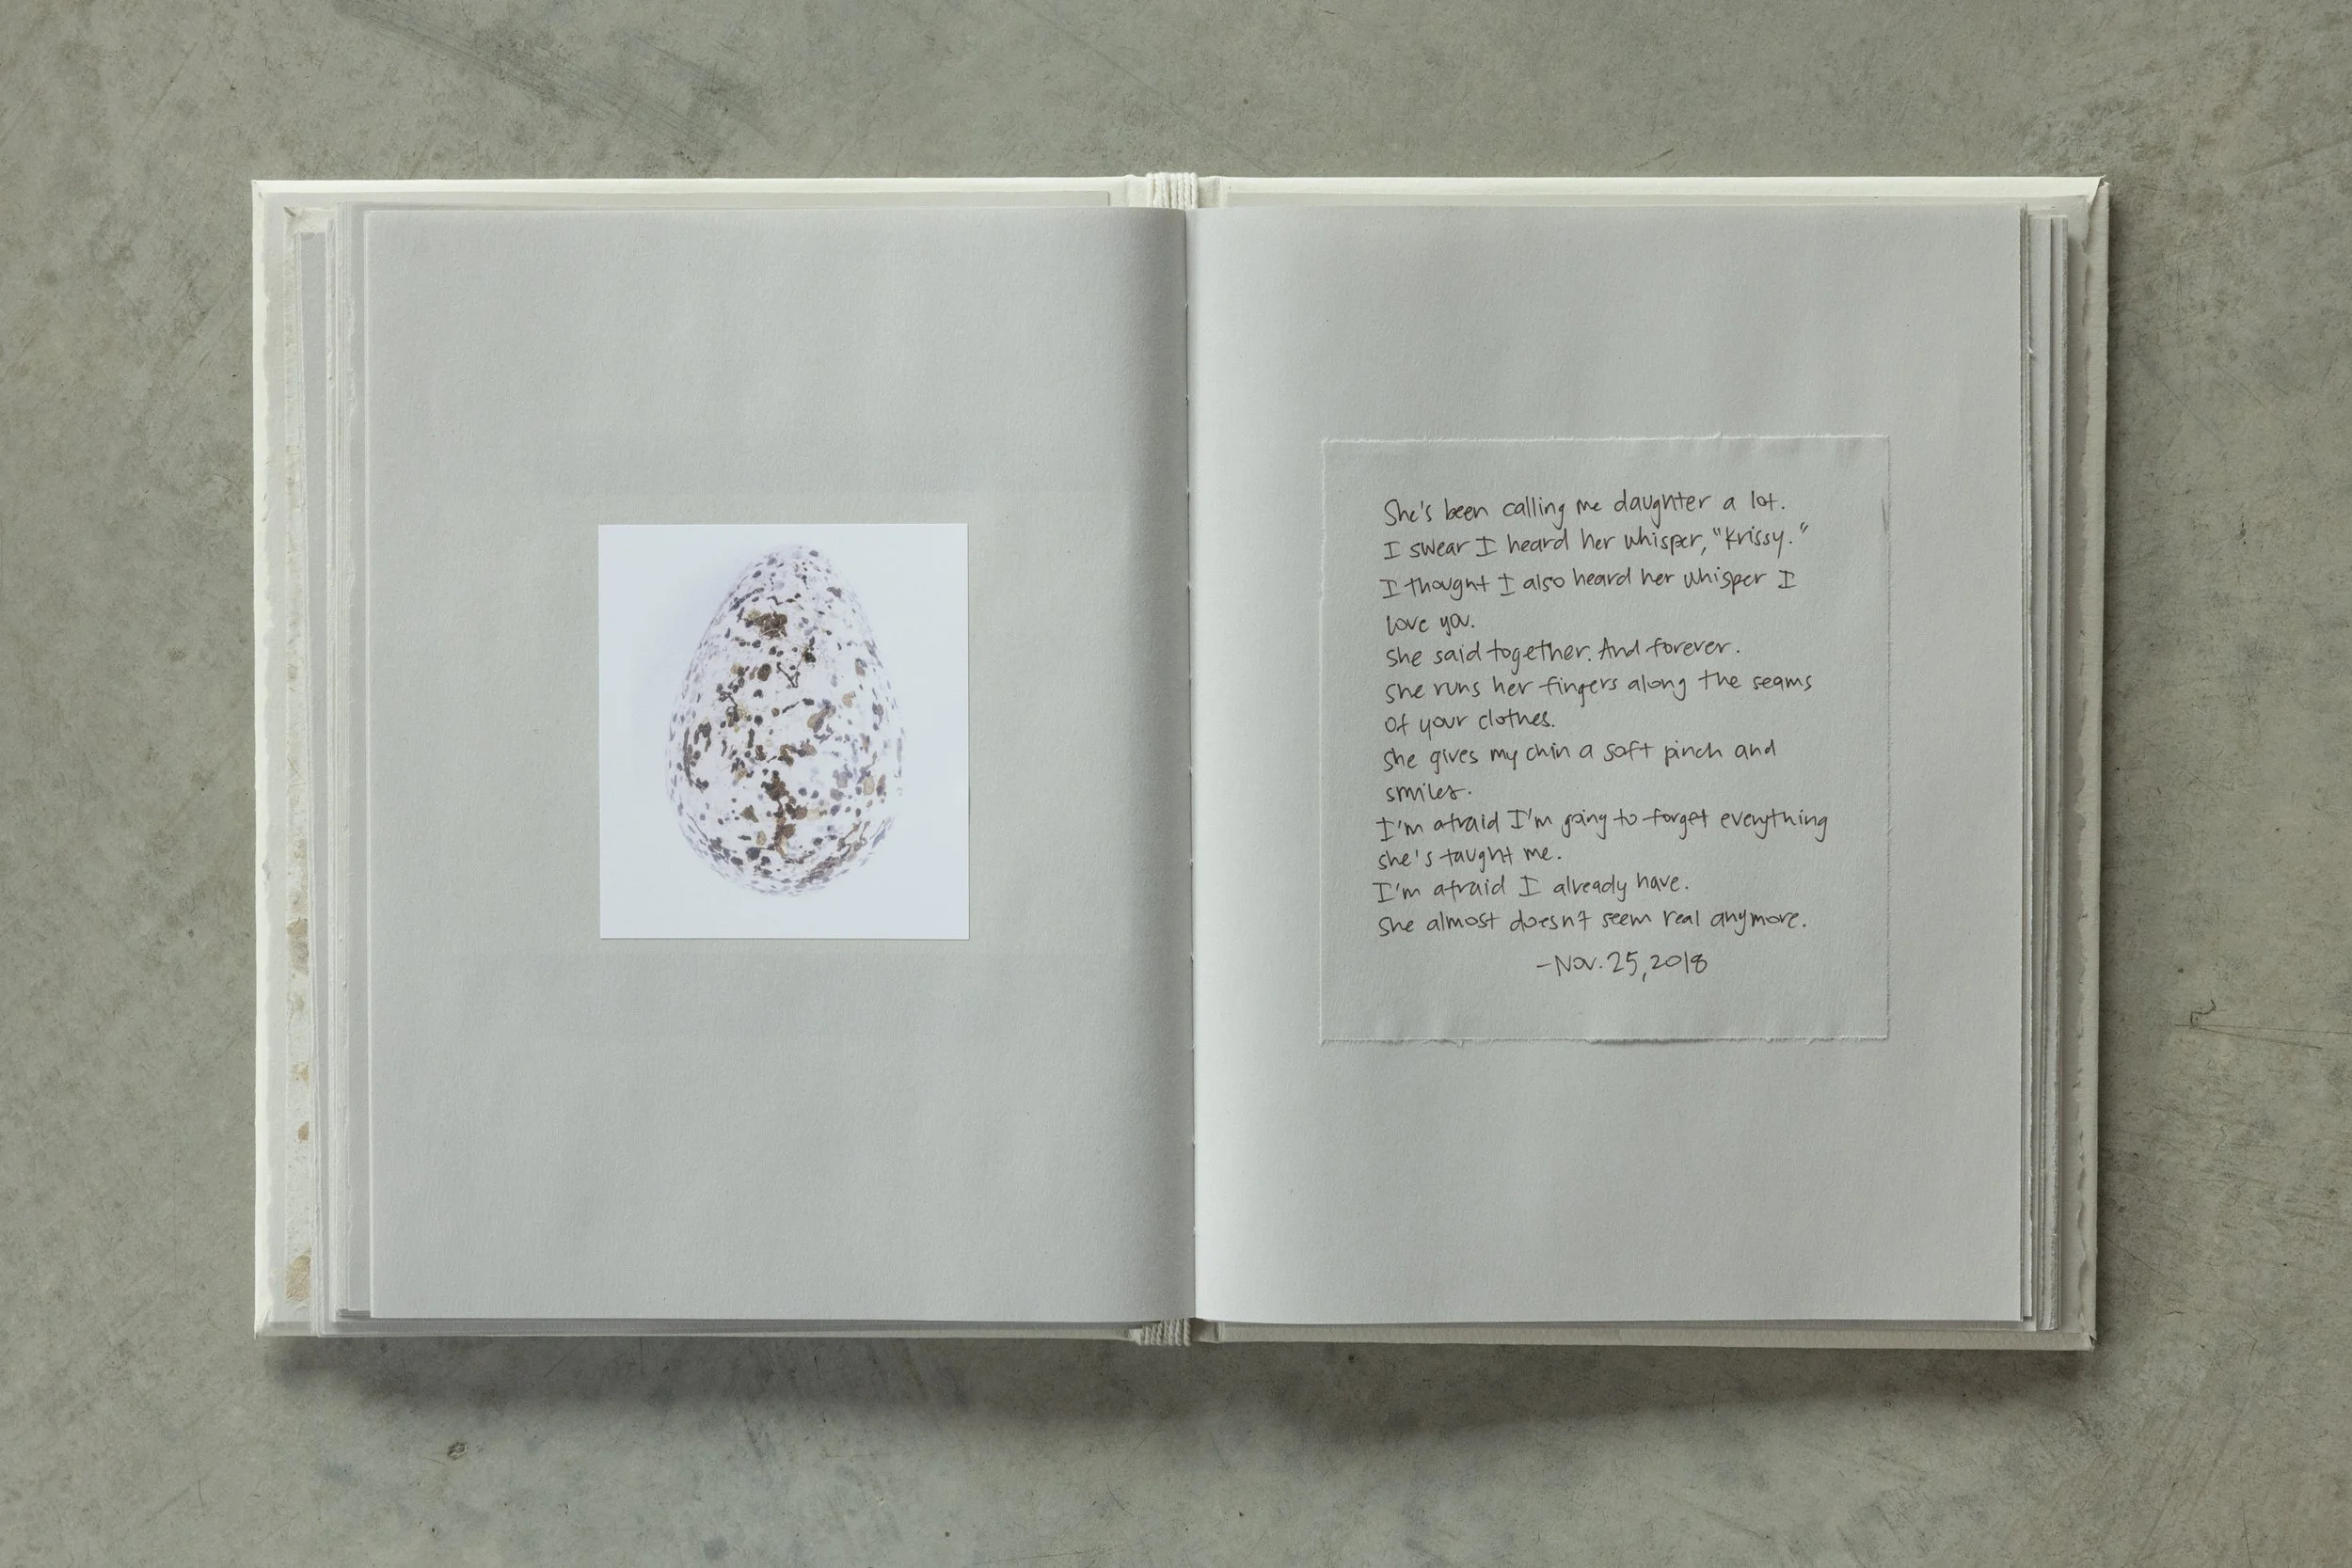 She's been calling me daughter a lot.
I swear I heard her whisper, "Krissy."
I thought I also heard her whisper I
love you.
She said together. And forever.
She runs her fingers along the seams
of your clothes.
She gives my chin a soft pinch and
smiles.
I'm afraid I'm going to forget everything
she's taught me.
I'm afraid I already have.
She almost doesn't seem real anymore.
-Nov. 25, 2018